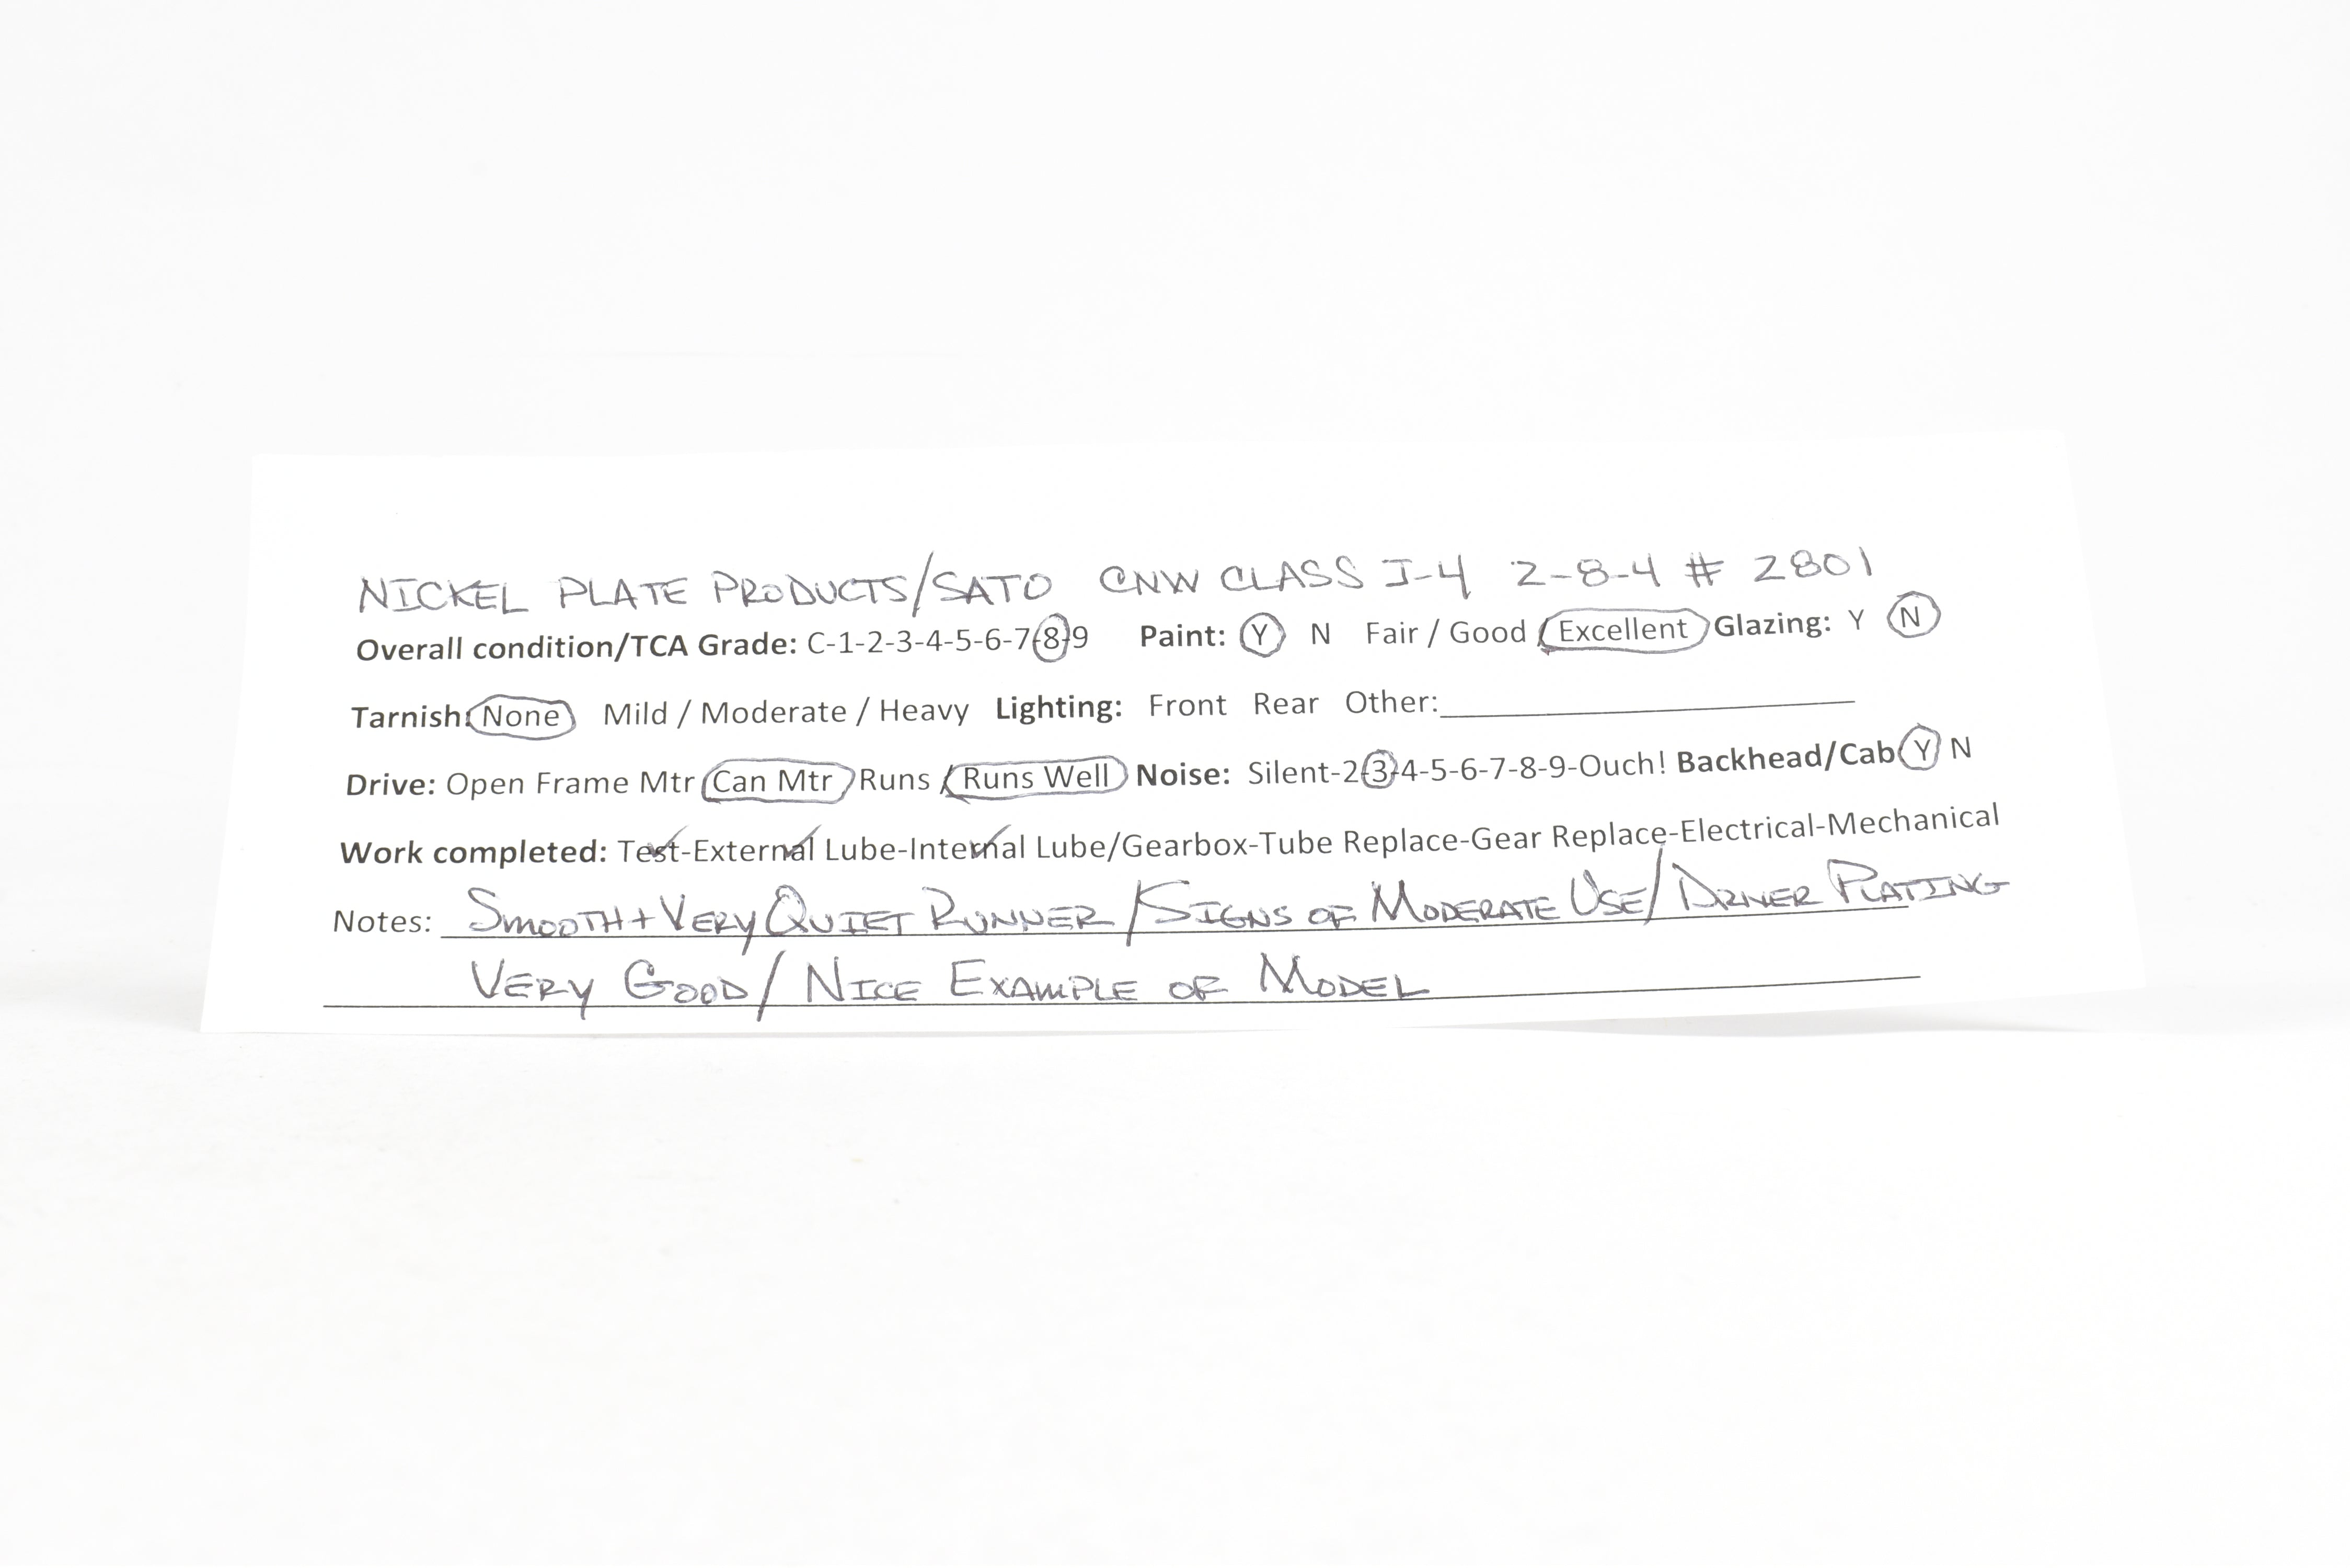 NICKEL PLATE PRODUCTS/SATO CNW CLASS J-4 2-8-4 # 2801
Overall condition/TCA Grade: C-1-2-3-4-5-6-7-8-9 Paint: Y N Fair / Good / Excellent Glazing: Y N
Tarnish: None Mild / Moderate / Heavy Lighting: Front Rear Other:
Drive: Open Frame Mtr Can Mtr Runs / Runs Well Noise: Silent-2-3-4-5-6-7-8-9-Ouch! Backhead/Cab Y N
Work completed: Test-External Lube-Internal Lube/Gearbox-Tube Replace-Gear Replace-Electrical-Mechanical
Notes: SMOOTH + VERY QUIET RUNNER / SIGNS OF MODERATE USE / DRIVER PLATING
VERY GOOD / NICE EXAMPLE OF MODEL